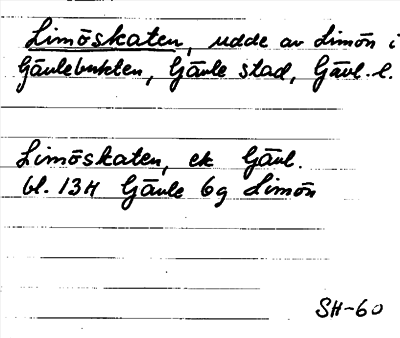 Limöskaten, udde av Limön i
Gävlebukten, Gävle stad, Gävl. l.
Limöskaten, ek Gävl.
bl. 13H Gävle 6g Limön
SH-60